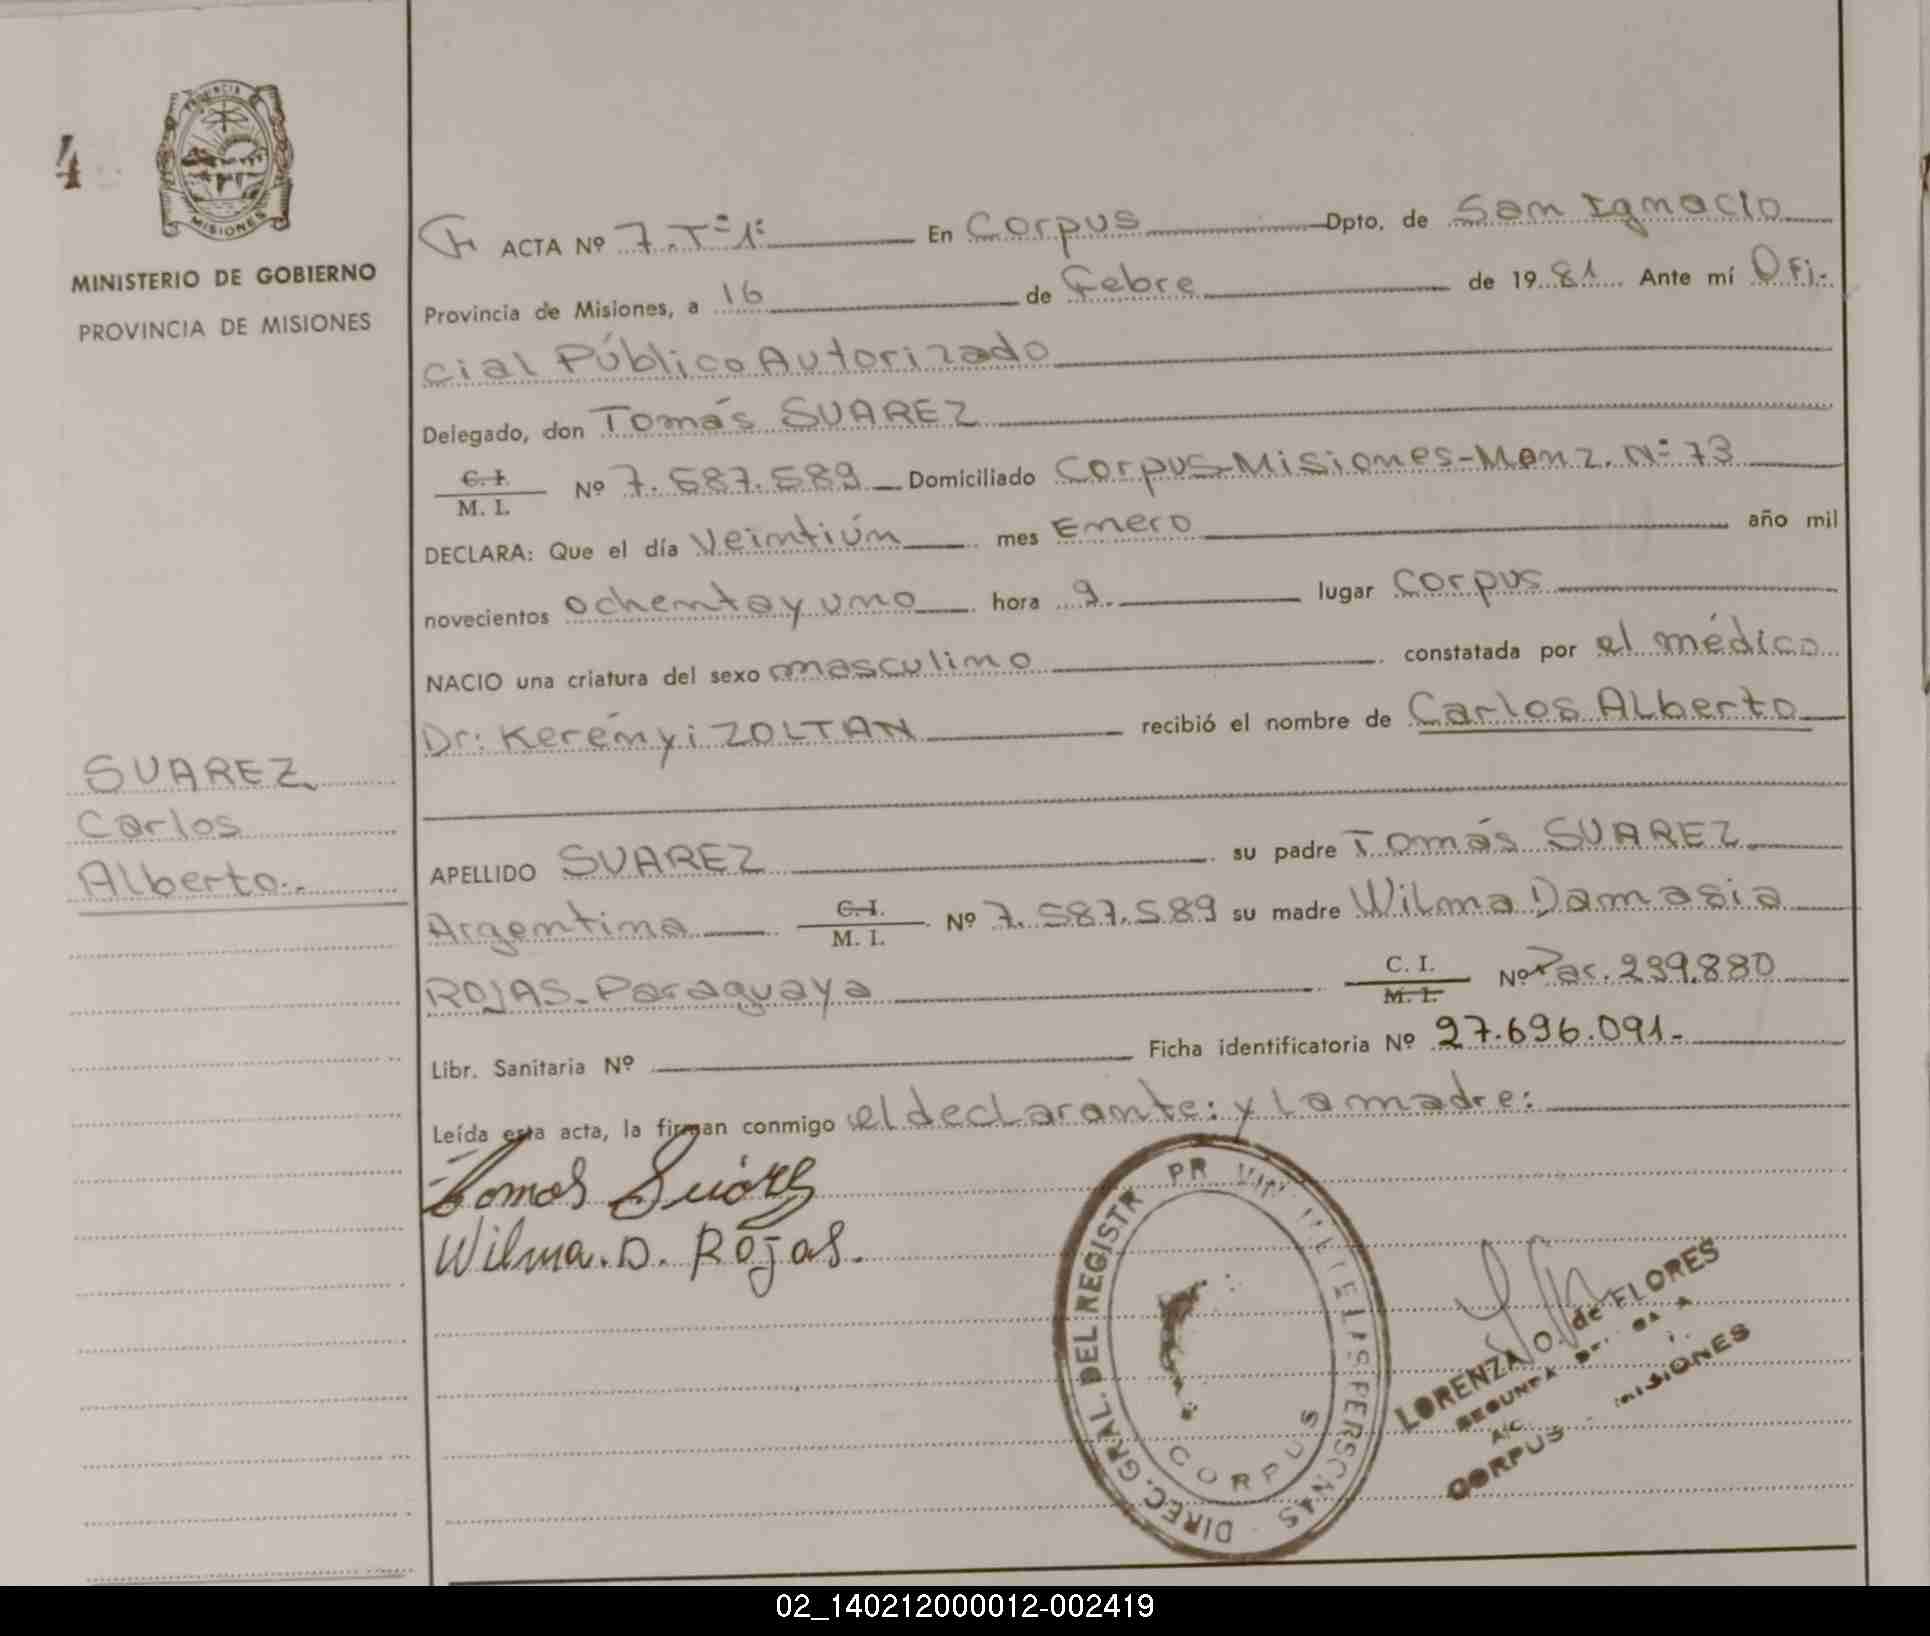 4
PROVINCIA
MISIONES
MINISTERIO DE GOBIERNO
PROVINCIA DE MISIONES
SUAREZ
Carlos
Alberto..
ACTA Nº 7.Tº1º En Corpus Dpto. de San Ignacio
Provincia de Misiones, a 16 de Febre de 1981 Ante mí Ofi-
cial Público Autorizado
Delegado, don Tomás SUAREZ
C. I.
M. I. Nº 7.587.589 Domiciliado Corpus-Misiones-Manz. Nº 73
DECLARA: Que el día Veintiún mes Enero año mil
novecientos ochentayuno hora 9. lugar Corpus
NACIO una criatura del sexo masculino constatada por el médico
Dr: Kerényi ZOLTAN recibió el nombre de Carlos Alberto
APELLIDO SUAREZ su padre Tomás SUAREZ
Argentina C. I. M. I. Nº 7.587.589 su madre Wilma Damasia
ROJAS-Paraguaya C. I. M. I. Nº Pac. 239.880
Libr. Sanitaria Nº Ficha identificatoria Nº 27.696.091.-
Leída esta acta, la firman conmigo el declarante: y la madre:
Tomas Suárez
Wilma. D. Rojas.
DIREC. GRAL. DEL REGISTR PERSONAS
CORPUS
LORENZA O. de FLORES
SEGUNDA
A/C
CORPUS - MISIONES
02_140212000012-002419